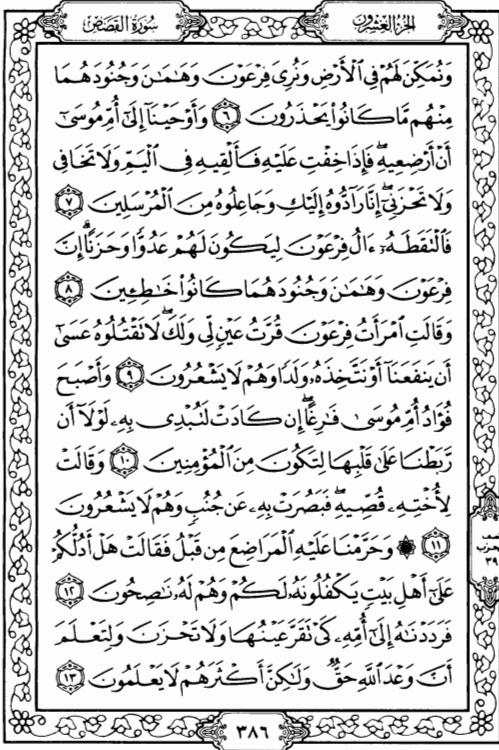 الجزء العشرون
سورة القصص
وَنُمَكِّنَ لَهُمْ فِي ٱلْأَرْضِ وَنُرِيَ فِرْعَوْنَ وَهَٰمَٰنَ وَجُنُودَهُمَا
مِنْهُم مَّا كَانُوا۟ يَحْذَرُونَ ٦ وَأَوْحَيْنَآ إِلَىٰٓ أُمِّ مُوسَىٰٓ
أَنْ أَرْضِعِيهِ ۖ فَإِذَا خِفْتِ عَلَيْهِ فَأَلْقِيهِ فِي ٱلْيَمِّ وَلَا تَخَافِي
وَلَا تَحْزَنِيٓ ۖ إِنَّا رَآدُّوهُ إِلَيْكِ وَجَاعِلُوهُ مِنَ ٱلْمُرْسَلِينَ ٧
فَٱلْتَقَطَهُۥٓ ءَالُ فِرْعَوْنَ لِيَكُونَ لَهُمْ عَدُوًّا وَحَزَنًا ۗ إِنَّ
فِرْعَوْنَ وَهَٰمَٰنَ وَجُنُودَهُمَا كَانُوا۟ خَٰطِـِٔينَ ٨
وَقَالَتِ ٱمْرَأَتُ فِرْعَوْنَ قُرَّتُ عَيْنٍ لِّي وَلَكَ ۖ لَا تَقْتُلُوهُ عَسَىٰٓ
أَن يَنفَعَنَآ أَوْ نَتَّخِذَهُۥ وَلَدًا وَهُمْ لَا يَشْعُرُونَ ٩ وَأَصْبَحَ
فُؤَادُ أُمِّ مُوسَىٰ فَٰرِغًا ۖ إِن كَادَتْ لَتُبْدِي بِهِۦ لَوْلَآ أَن
رَّبَطْنَا عَلَىٰ قَلْبِهَا لِتَكُونَ مِنَ ٱلْمُؤْمِنِينَ ١٠ وَقَالَتْ
لِأُخْتِهِۦ قُصِّيهِ ۖ فَبَصُرَتْ بِهِۦ عَن جُنُبٍ وَهُمْ لَا يَشْعُرُونَ
١١ ۞ وَحَرَّمْنَا عَلَيْهِ ٱلْمَرَاضِعَ مِن قَبْلُ فَقَالَتْ هَلْ أَدُلُّكُمْ
عَلَىٰٓ أَهْلِ بَيْتٍ يَكْفُلُونَهُۥ لَكُمْ وَهُمْ لَهُۥ نَٰصِحُونَ ١٢
فَرَدَدْنَٰهُ إِلَىٰٓ أُمِّهِۦ كَيْ تَقَرَّ عَيْنُهَا وَلَا تَحْزَنَ وَلِتَعْلَمَ
أَنَّ وَعْدَ ٱللَّهِ حَقٌّ وَلَٰكِنَّ أَكْثَرَهُمْ لَا يَعْلَمُونَ ١٣
٣٩
٣٨٦